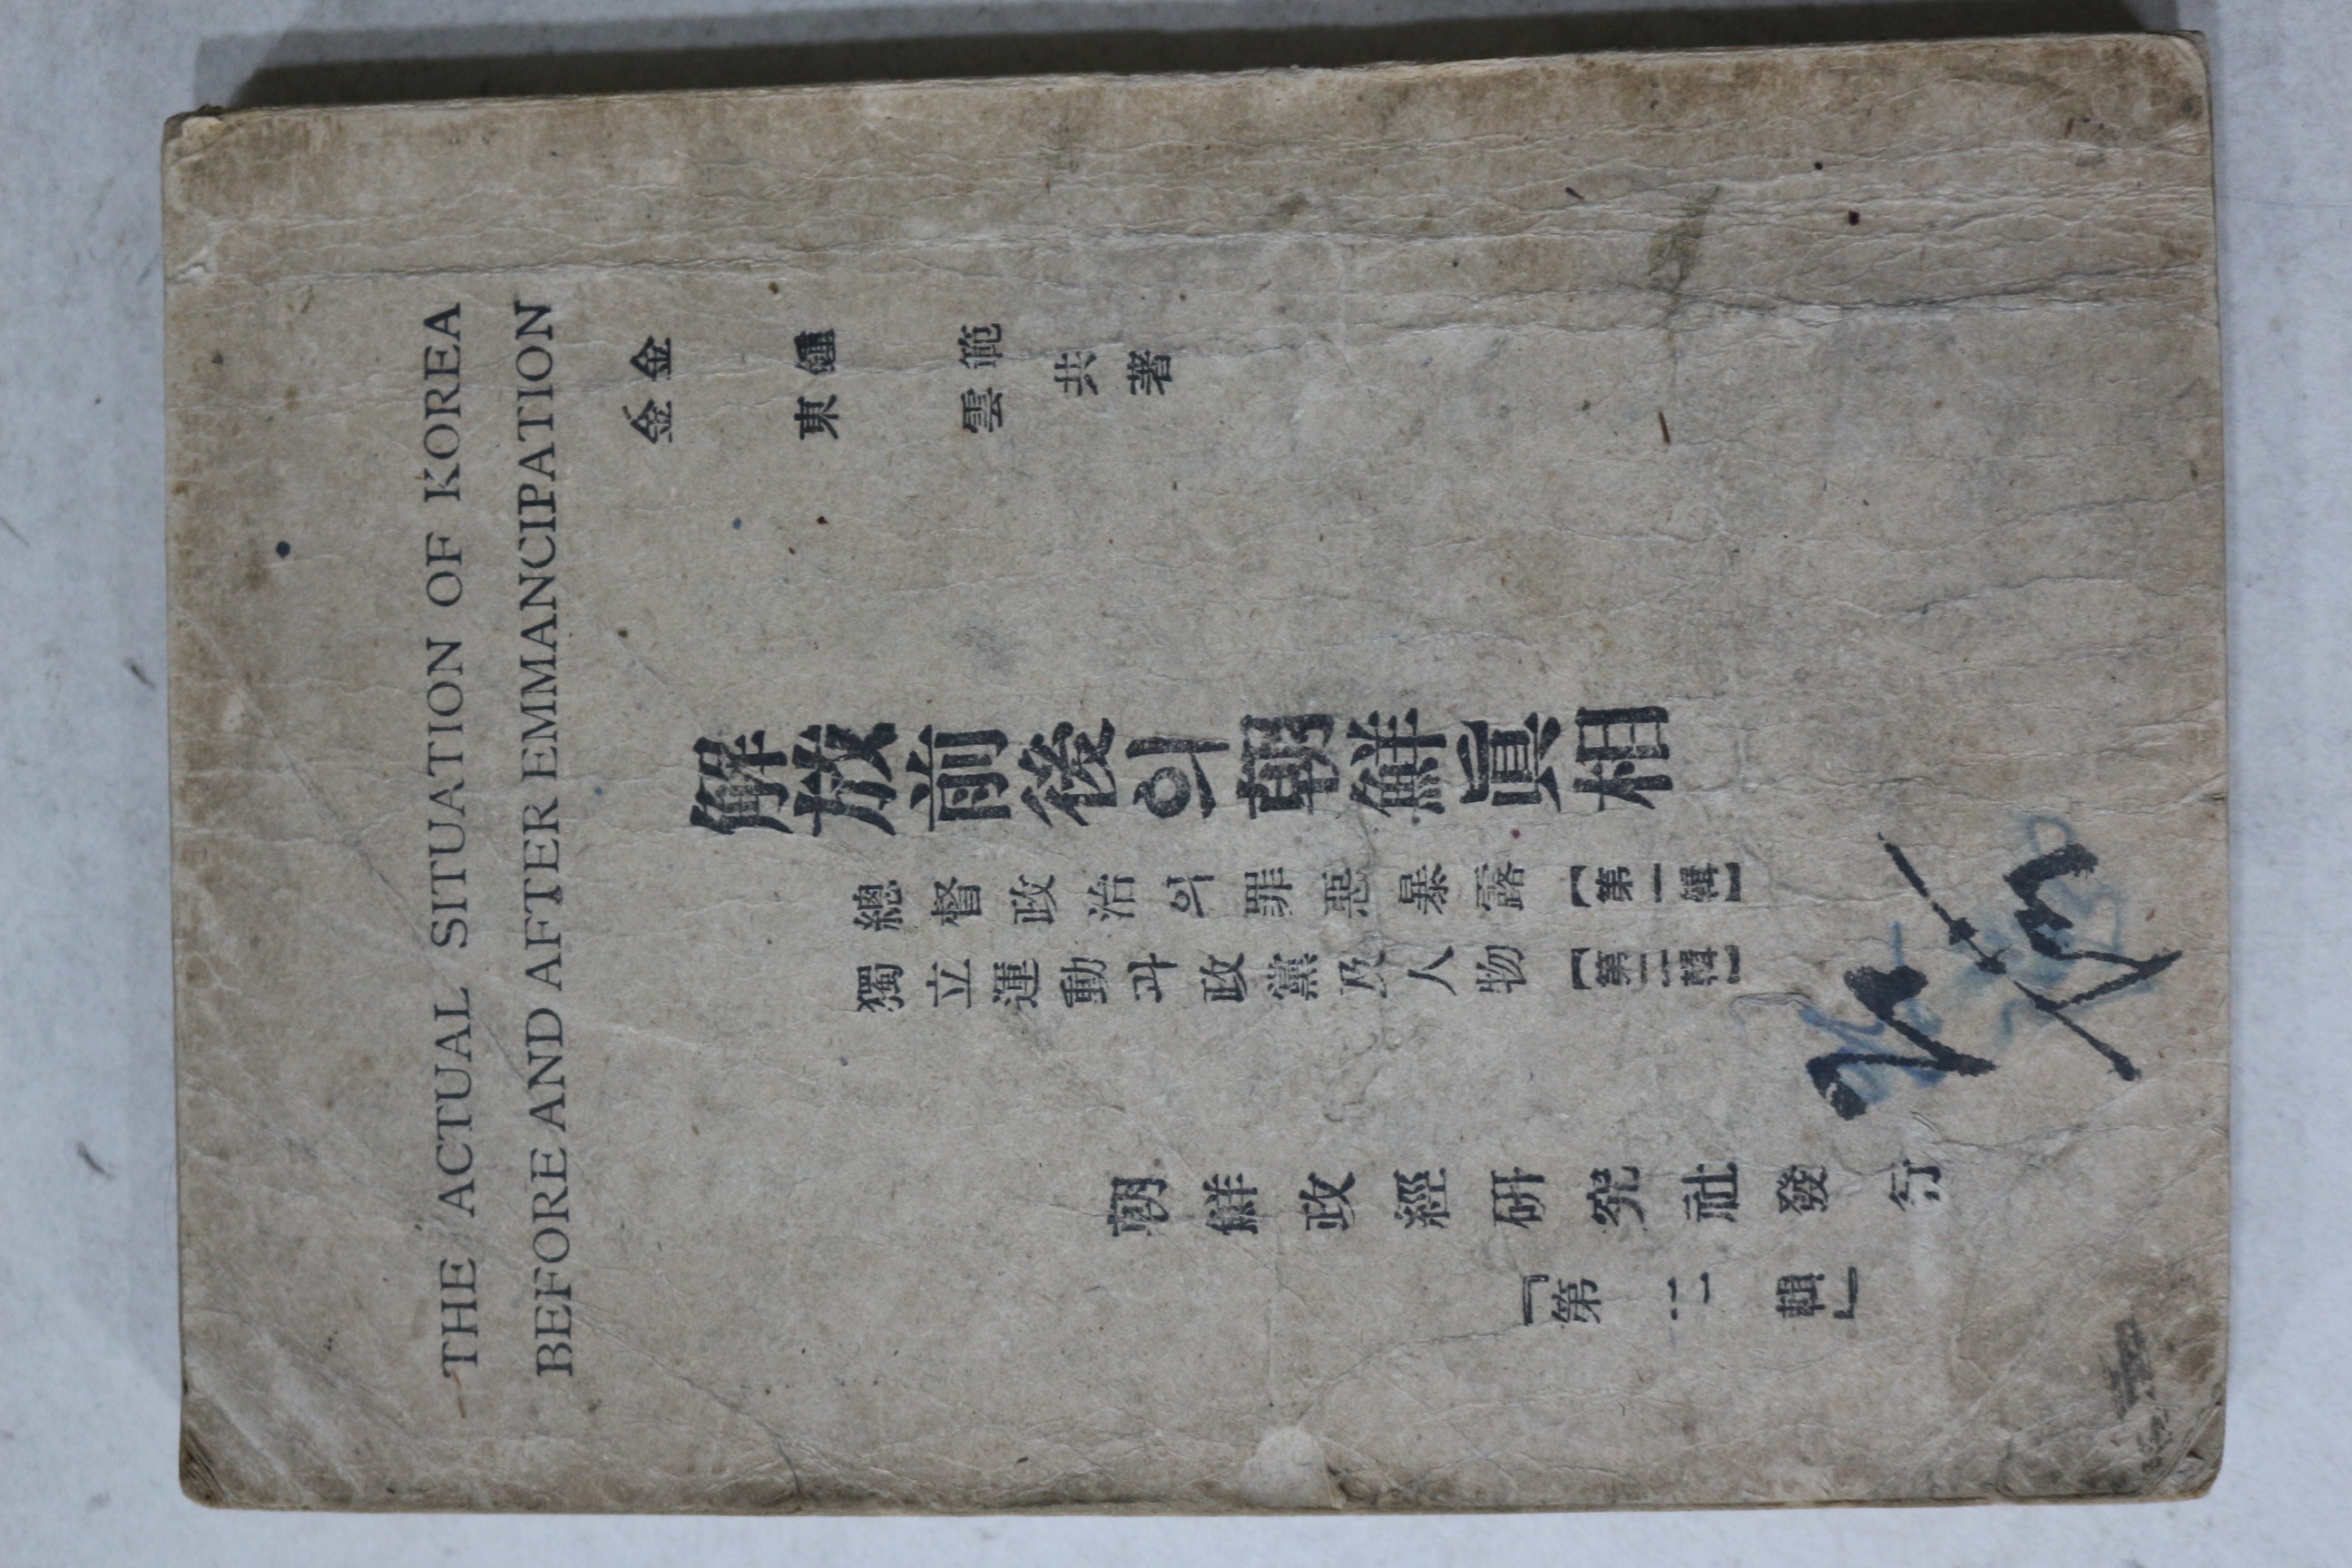 THE ACTUAL SITUATION OF KOREA
BEFORE AND AFTER EMMANCIPATION
金鍾範
金東雲
共著
解放前後의朝鮮眞相
總督政治의罪惡暴露【第一輯】
獨立運動과政黨及人物【第二輯】
朝鮮政經研究社發行
『第二輯』